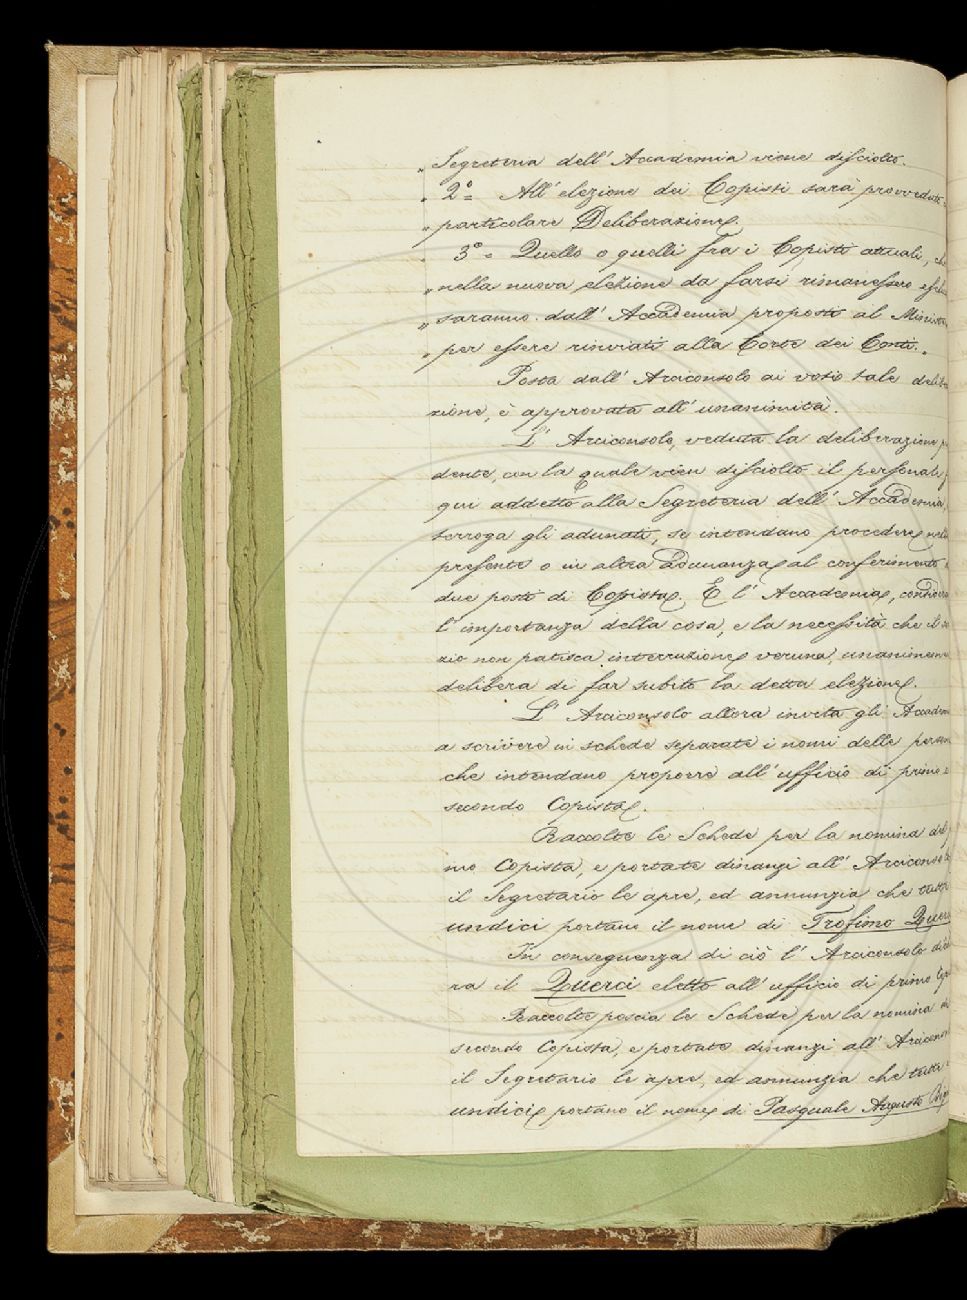 „ Segreteria dell' Accademia viene disciolto.
„ 2º = All' elezione dei Copisti sarà provveduto
„ particolare Deliberazione.
„ 3º = Quello o quelli fra i Copisti attuali, che
„ nella nuova elezione da farsi rimanessero
„ saranno dall' Accademia proposti al
„ per essere rinviati alla Corte dei Conti. „
Posta dall' Arciconsolo ai voti tale
zione, è approvata all' unanimità.
L' Arciconsolo, veduta la deliberazione
dente, con la quale vien disciolto il personale
qui addetto alla Segreteria dell' Accademia,
terroga gli adunati, se intendano procedere
presente o in altra adunanza al conferimento
due posti di Copista. E l' Accademia,
l' importanza della cosa, e la necessità che il
zio non patisca interruzione veruna,
delibera di far subito la detta elezione.
L' Arciconsolo allora invita gli
a scrivere in schede separate i nomi delle
che intendano proporre all' ufficio di primo
secondo Copista.
Raccolte le Schede per la nomina
mo Copista, e portate dinanzi all'
il Segretario le apre, ed annunzia che
undici portano il nome di Trofimo
In conseguenza di ciò l' Arciconsolo
ra il Querci eletto all' ufficio di primo
Raccolte poscia le Schede per la nomina
secondo Copista, e portate dinanzi all'
il Segretario le apre, ed annunzia che
undici portano il nome di Pasquale Augusto